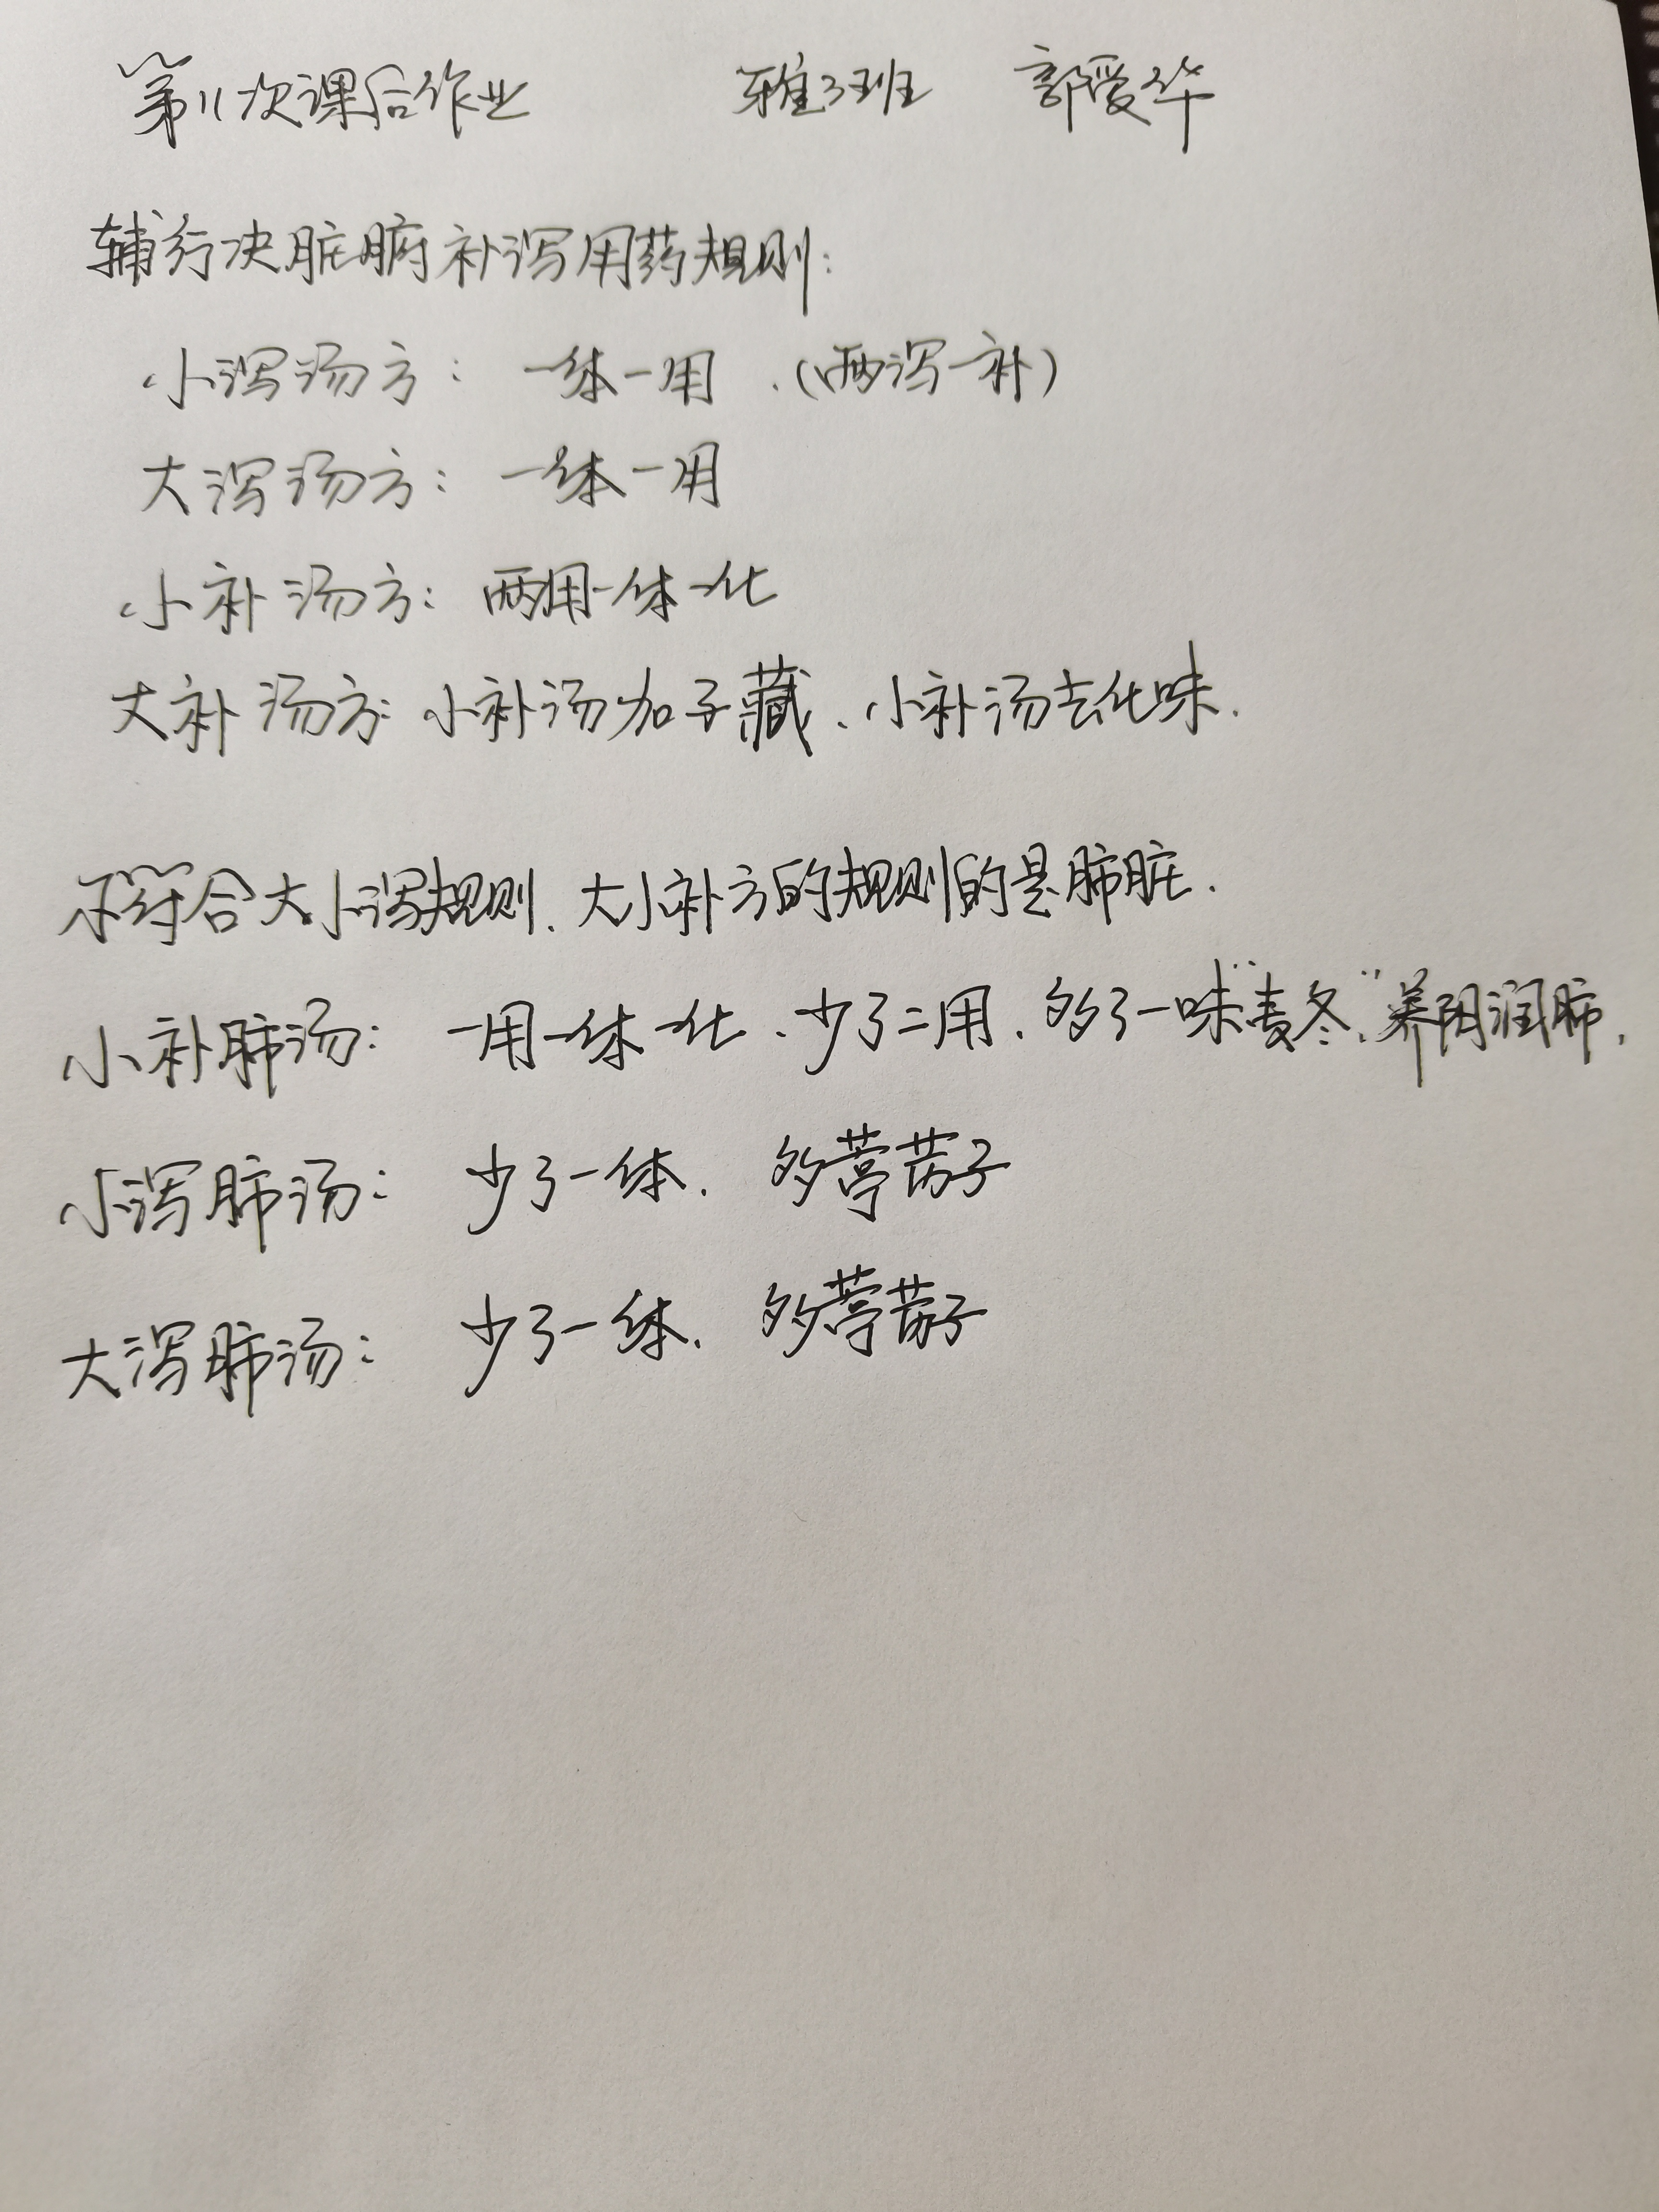 第11次课后作业 雅3班 郭爱华
辅行决脏腑补泻用药规则:
小泻汤方: 一体一用.(两泻一补)
大泻汤方: 一体一用
小补汤方: 两用一体一化
大补汤方: 小补汤加子藏、小补汤去化味.
不符合大小泻规则、大小补方的规则的是肺脏.
小补肺汤: 一用一体一化、少了二用、多了一味"麦冬"养阴润肺,
小泻肺汤: 少了一体. 多葶苈子
大泻肺汤: 少了一体. 多葶苈子